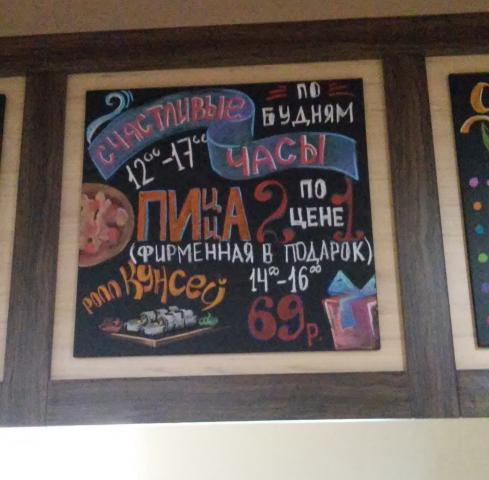 СЧАСТЛИВЫЕ
ЧАСЫ
ПО
БУДНЯМ
12⁰⁰-17⁰⁰
ПИЦЦА 2 ПО ЦЕНЕ 1
(ФИРМЕННАЯ В ПОДАРОК)
РОЛЛ КУНСЕЙ
14⁰⁰-16⁰⁰
69р.